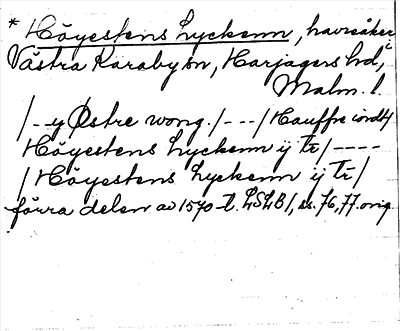 * Höyestens Lyckenn, havreåker i
Västra Karaby sn, Harjagers hd,
Malm. l.
/--y Østre wong./---/Hauffre iordt/
Höyestens Lyckenn ij tr/----
/Höyestens Lyckenn ij tr/
förra delen av 1570-t. LSLB1, ss. 76, 77. orig.